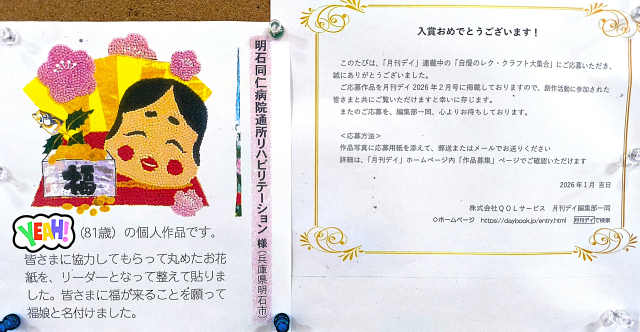 福
YEAH!
（81歳）の個人作品です。
皆さまに協力してもらって丸めたお花
紙を、リーダーとなって整えて貼りま
した。皆さまに福が来ることを願って
福娘と名付けました。
明石同仁病院通所リハビリテーション 様（兵庫県明石市）
入賞おめでとうございます！
このたびは、「月刊デイ」連載中の「自慢のレク・クラフト大集合」にご応募いただき、
誠にありがとうございました。
ご応募作品を月刊デイ 2026 年 2 月号に掲載しておりますので、創作活動に参加された
皆さまと共にご覧いただけますと幸いに存じます。
またのご応募を、編集部一同、心よりお待ちしております。
＜応募方法＞
作品写真に応募用紙を添えて、郵送またはメールでお送りください
詳細は、「月刊デイ」ホームページ内「作品募集」ページでご確認いただけます
2026 年 1 月 吉日
株式会社QOLサービス 月刊デイ編集部一同
◇ホームページ https://daybook.jp/entry.html 月刊デイで検索